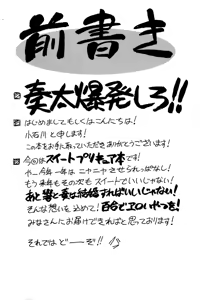 前書き
奏太爆発しろ!!
はじめまして もしくは こんにちは!
小石川と申します!
この本をお手に取っていただきありがとうございます!
今回はスイートプリキュア本です!
や〜今年一年はニヤニヤさせられっぱなし!
もう来年もその次もスイートでいいじゃない!
あと響と奏は結婚すればいいじゃない!
そんな想いを込めて!百合でエロいやつを!
みなさんにお届けできればと思っております!
それではどーぞ!!